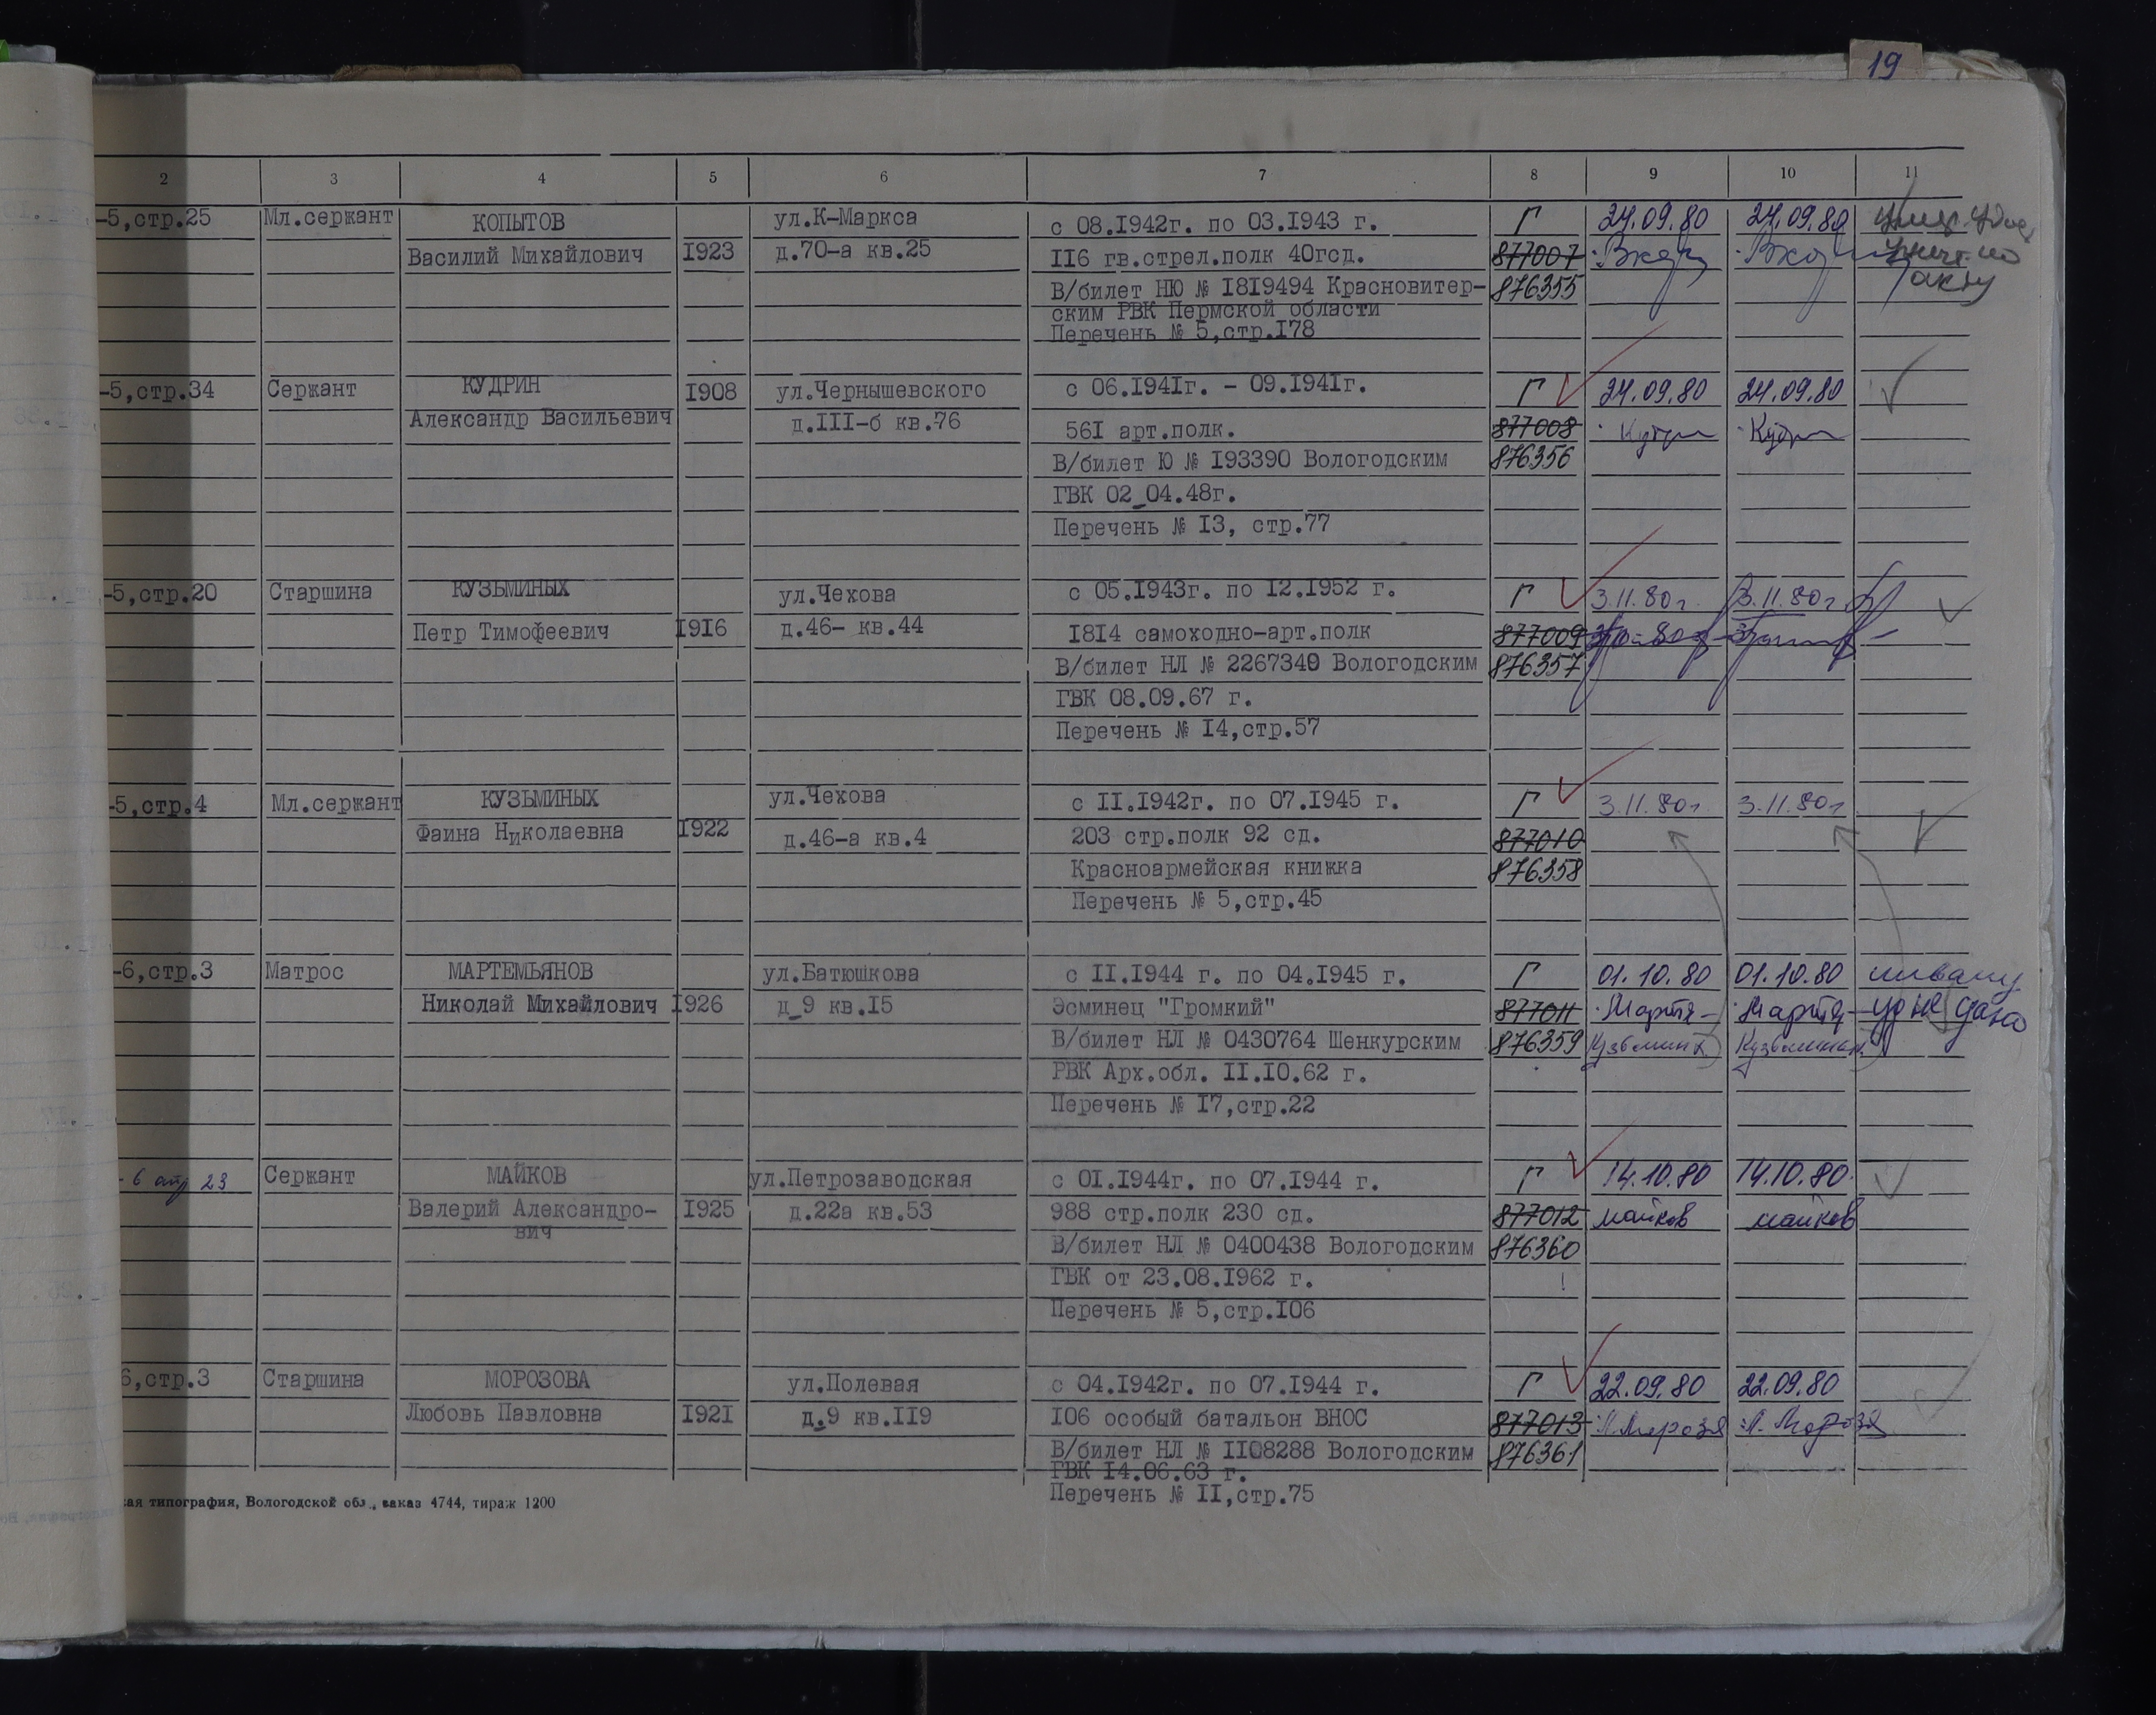 19
2 3 4 5 6 7 8 9 10 11
-5,стр.25 Мл.сержант КОПЫТОВ ул.К-Маркса с 08.1942г. по 03.1943 г. Г 24.09.80 24.09.80
Василий Михайлович 1923 д.70-а кв.25 116 гв.стрел.полк 40гсд. 877007
В/билет НЮ № 1819494 Красновитер- 876355 акту
ским РВК Пермской области
Перечень № 5,стр.178
-5,стр.34 Сержант КУДРИН 1908 ул.Чернышевского с 06.1941г. - 09.1941г. Г 24.09.80 24.09.80
Александр Васильевич д.111-б кв.76 561 арт.полк. 877008
В/билет Ю № 193390 Вологодским 876356
ГВК 02_04.48г.
Перечень № 13, стр.77
-5,стр.20 Старшина КУЗЬМИНЫХ ул.Чехова с 05.1943г. по 12.1952 г. Г 3.11.80г. 3.11.80г
Петр Тимофеевич 1916 д.46- кв.44 1814 самоходно-арт.полк 877009
В/билет НЛ № 2267340 Вологодским 876357
ГВК 08.09.67 г.
Перечень № 14,стр.57
-5,стр.4 Мл.сержант КУЗЬМИНЫХ ул.Чехова с 11.1942г. по 07.1945 г. Г 3.11.80г. 3.11.80г
Фаина Николаевна 1922 д.46-а кв.4 203 стр.полк 92 сд. 877010
Красноармейская книжка 876358
Перечень № 5,стр.45
-6,стр.3 Матрос МАРТЕМЬЯНОВ ул.Батюшкова с 11.1944 г. по 04.1945 г. Г 01.10.80 01.10.80
Николай Михайлович 1926 д_9 кв.15 Эсминец "Громкий" 877011
В/билет НЛ № 0430764 Шенкурским 876359
РВК Арх.обл. 11.10.62 г.
Перечень № 17,стр.22
- 6 стр 23 Сержант МАЙКОВ ул.Петрозаводская с 01.1944г. по 07.1944 г. Г 14.10.80 14.10.80.
Валерий Александро- 1925 д.22а кв.53 988 стр.полк 230 сд. 877012 майков майков
вич
В/билет НЛ № 0400438 Вологодским 876360
ГВК от 23.08.1962 г.
Перечень № 5,стр.106
6,стр.3 Старшина МОРОЗОВА ул.Полевая с 04.1942г. по 07.1944 г. Г 22.09.80 22.09.80
Любовь Павловна 1921 д.9 кв.119 106 особый батальон ВНОС 877013
В/билет НЛ № 1108288 Вологодским 876361
ГВК 14.06.63 г.
Перечень № 11,стр.75
кая типография, Вологодской обл., заказ 4744, тираж 1200